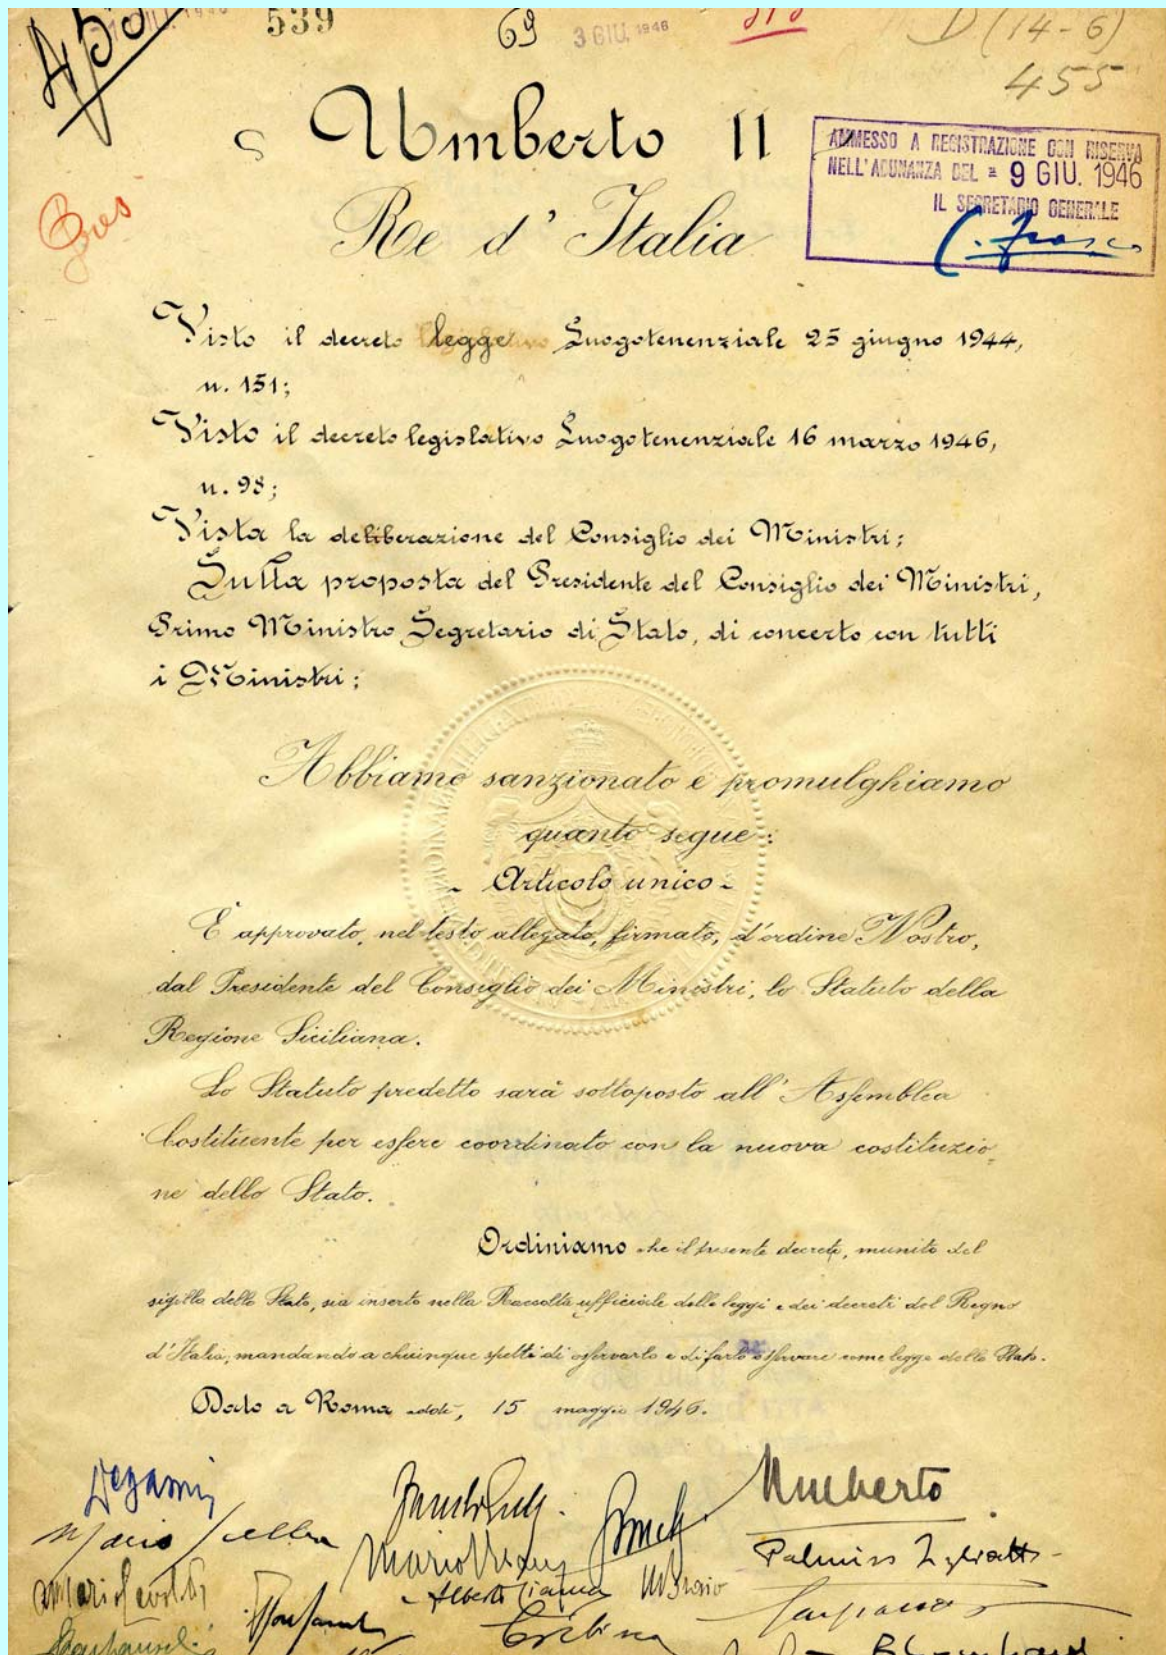 455
539
69
3 GIU. 1946
D (14-6)
455
Umberto II
Re d' Italia
AMMESSO A REGISTRAZIONE CON RISERVA
NELL'ADUNANZA DEL = 9 GIU. 1946
IL SEGRETARIO GENERALE
Visto il decreto legge Luogotenenziale 25 giugno 1944,
n. 151;
Visto il decreto legislativo Luogotenenziale 16 marzo 1946,
n. 98;
Vista la deliberazione del Consiglio dei Ministri;
Sulla proposta del Presidente del Consiglio dei Ministri,
Primo Ministro Segretario di Stato, di concerto con tutti
i Ministri;
Abbiamo sanzionato e promulghiamo
quanto segue:
- Articolo unico -
È approvato, nel testo allegato, firmato, d'ordine Nostro,
dal Presidente del Consiglio dei Ministri, lo Statuto della
Regione Siciliana.
Lo Statuto predetto sarà sottoposto all'Assemblea
Costituente per essere coordinato con la nuova costituzio-
ne dello Stato.
Ordiniamo che il presente decreto, munito del
sigillo dello Stato, sia inserto nella Raccolta ufficiale delle leggi e dei decreti del Regno
d'Italia, mandando a chiunque spetti di osservarlo e di farlo osservare come legge dello Stato.
Dato a Roma addì, 15 maggio 1946.
Umberto
Degasperi
Mario Scelba
Palmiro Togliatti